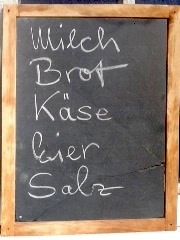 Milch
Brot
Käse
Eier
Salz